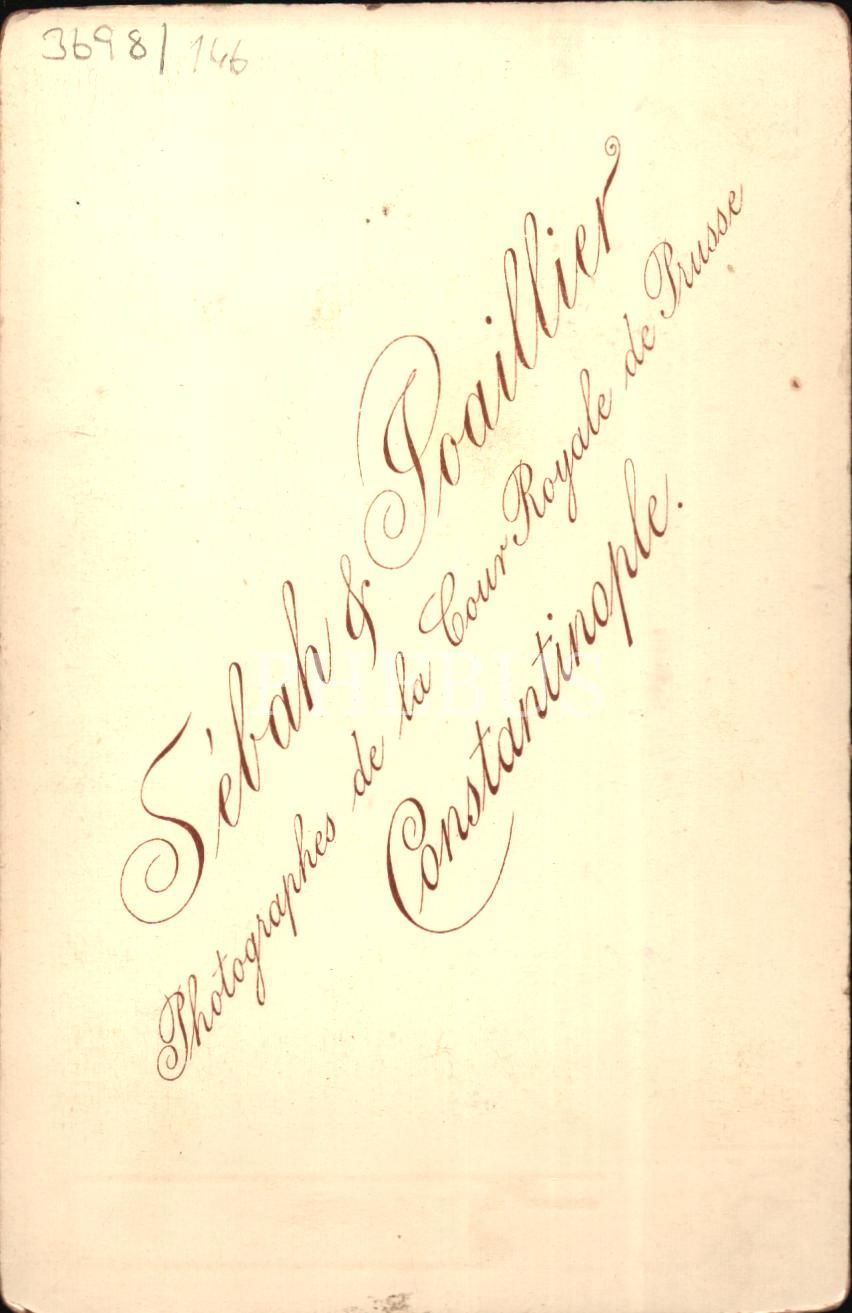 3698/146
Sébah & Joaillier
Photographes de la Cour Royale de Prusse
Constantinople.
PHEBUS